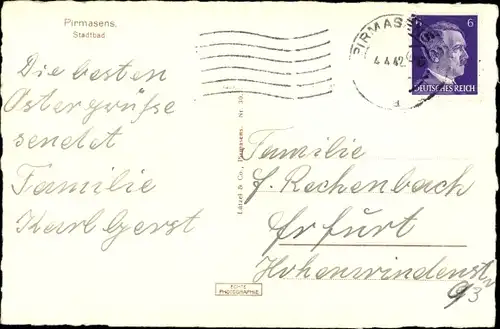 Pirmasens.
Stadtbad
Die besten
Ostergrüße
sendet
Familie
Karl Gerst
Lützel & Co., Pirmasens. Nr.
ECHTE
PHOTOGRAPHIE
PIRMAS
4.4.42
6
DEUTSCHES REICH
Familie
J. Rechenbach
Erfurt
Hohenwindenstr
93